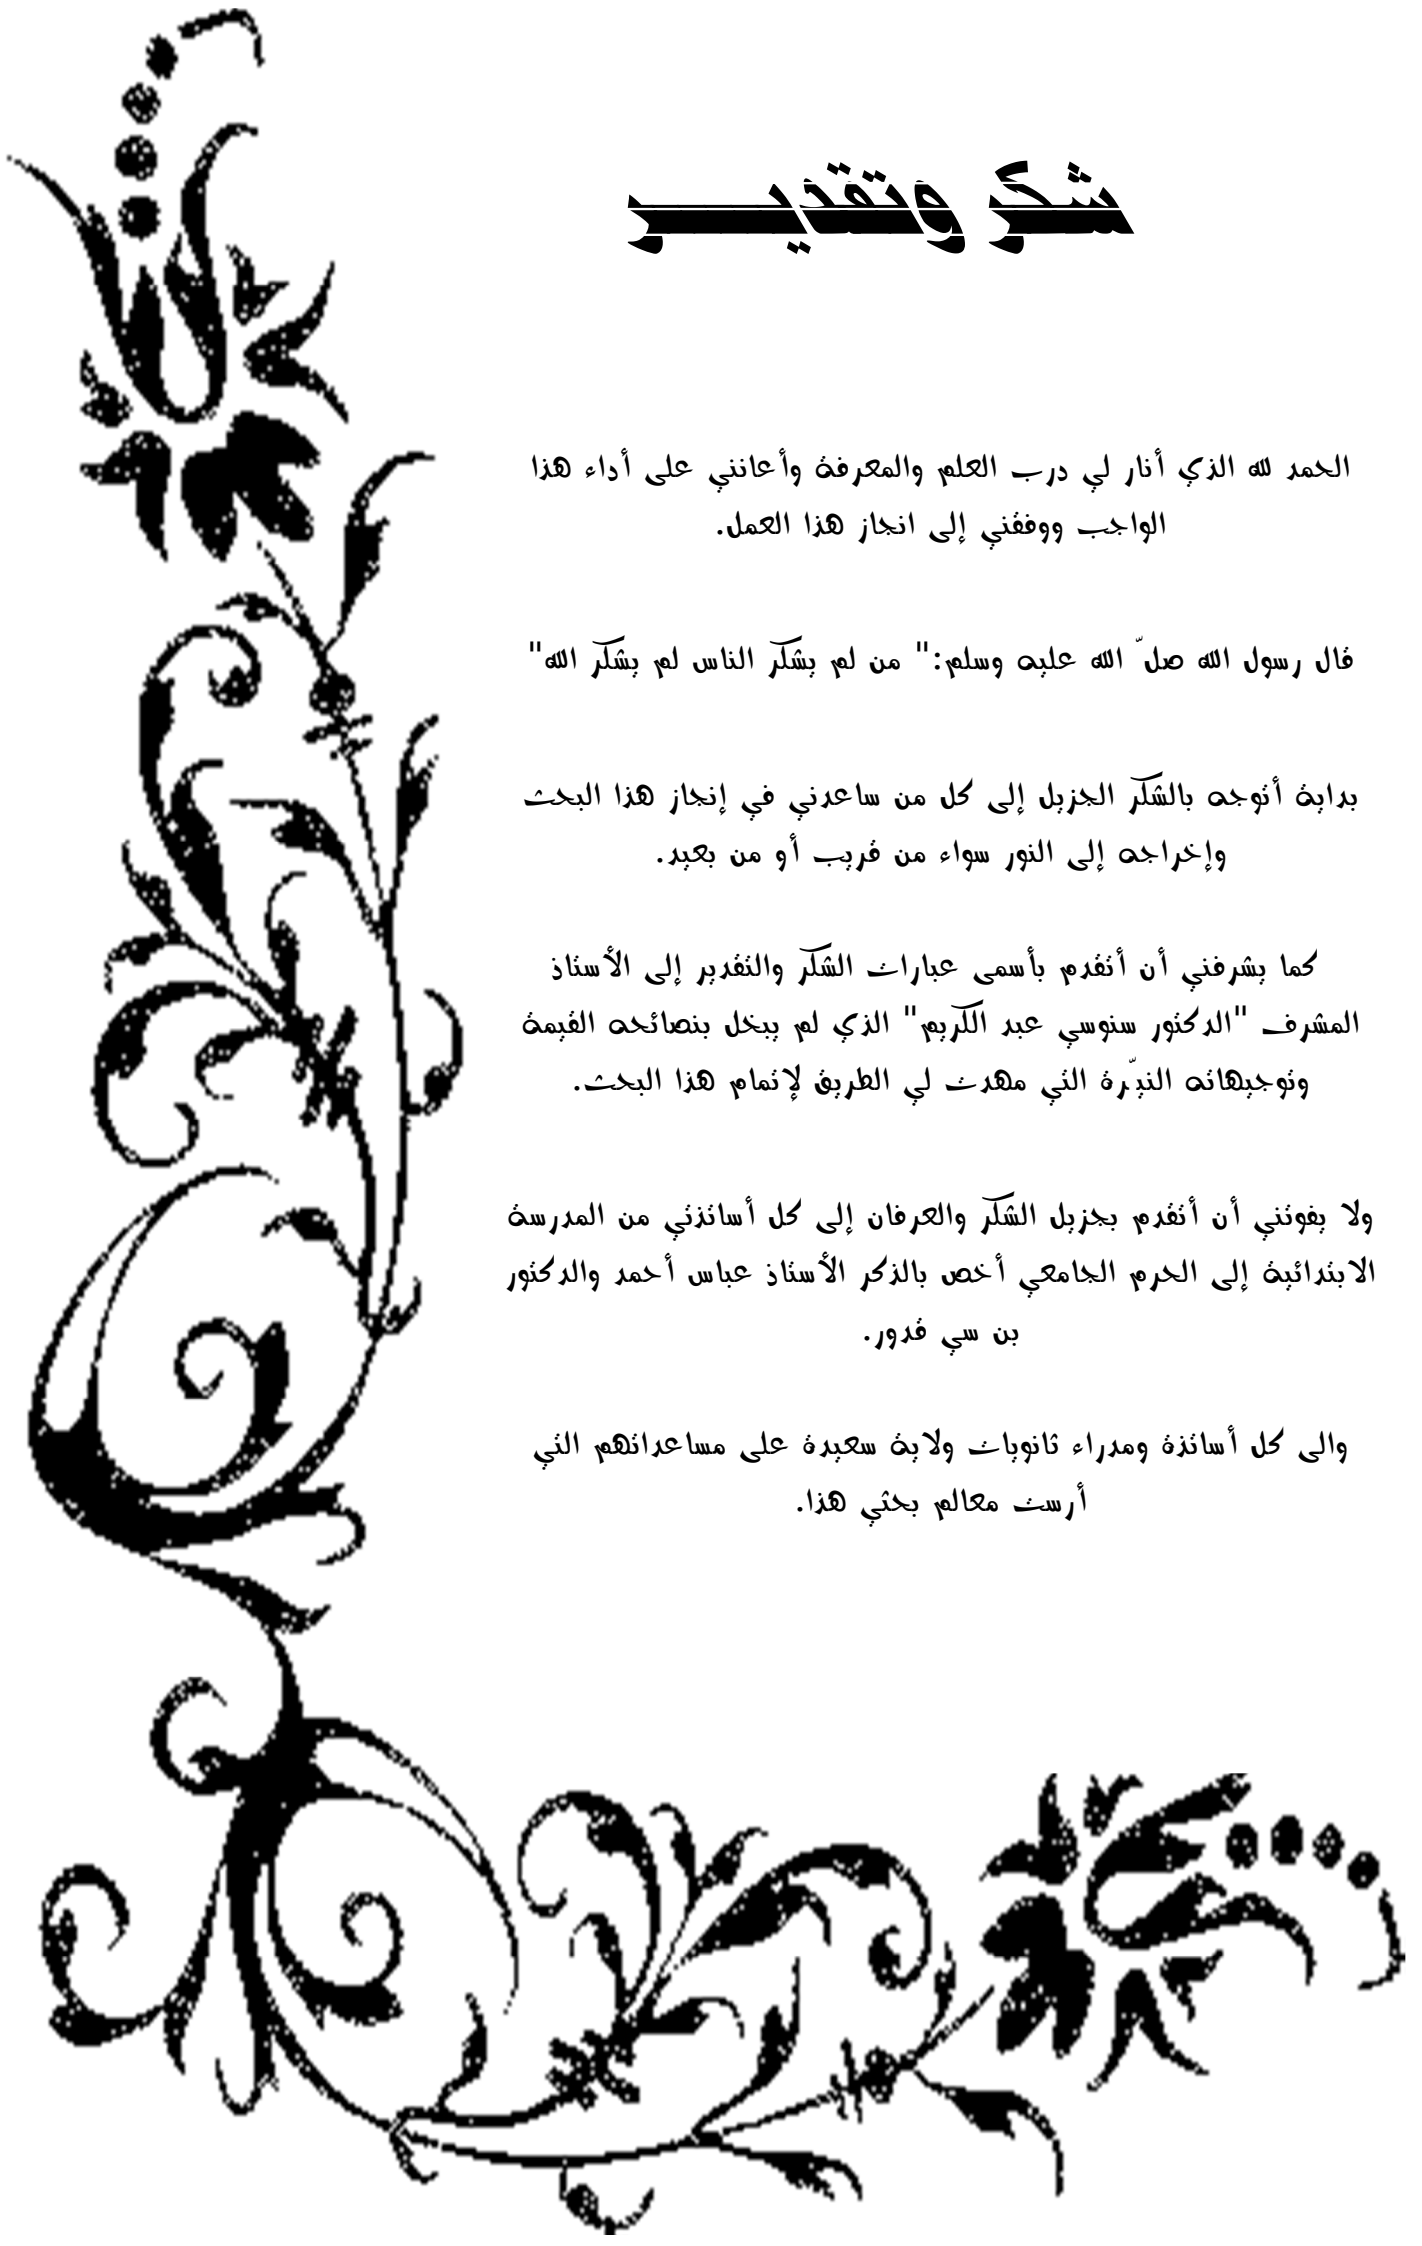 شكر وتقديــــر
الحمد لله الذي أنار لي درب العلم والمعرفة وأعانني على أداء هذا
الواجب ووفقني إلى انجاز هذا العمل.
قال رسول الله صلّ الله عليه وسلم:" من لم يشكر الناس لم يشكر الله"
بداية أتوجه بالشكر الجزيل إلى كل من ساعدني في إنجاز هذا البحث
وإخراجه إلى النور سواء من قريب أو من بعيد.
كما يشرفني أن أتقدم بأسمى عبارات الشكر والتقدير إلى الأستاذ
المشرف "الدكتور سنوسي عبد الكريم" الذي لم يبخل بنصائحه القيمة
وتوجيهاته النيّرة التي مهدت لي الطريق لإتمام هذا البحث.
ولا يفوتني أن أتقدم بجزيل الشكر والعرفان إلى كل أساتذتي من المدرسة
الابتدائية إلى الحرم الجامعي أخص بالذكر الأستاذ عباس أحمد والدكتور
بن سي قدور.
والى كل أساتذة ومدراء ثانويات ولاية سعيدة على مساعداتهم التي
أرست معالم بحثي هذا.